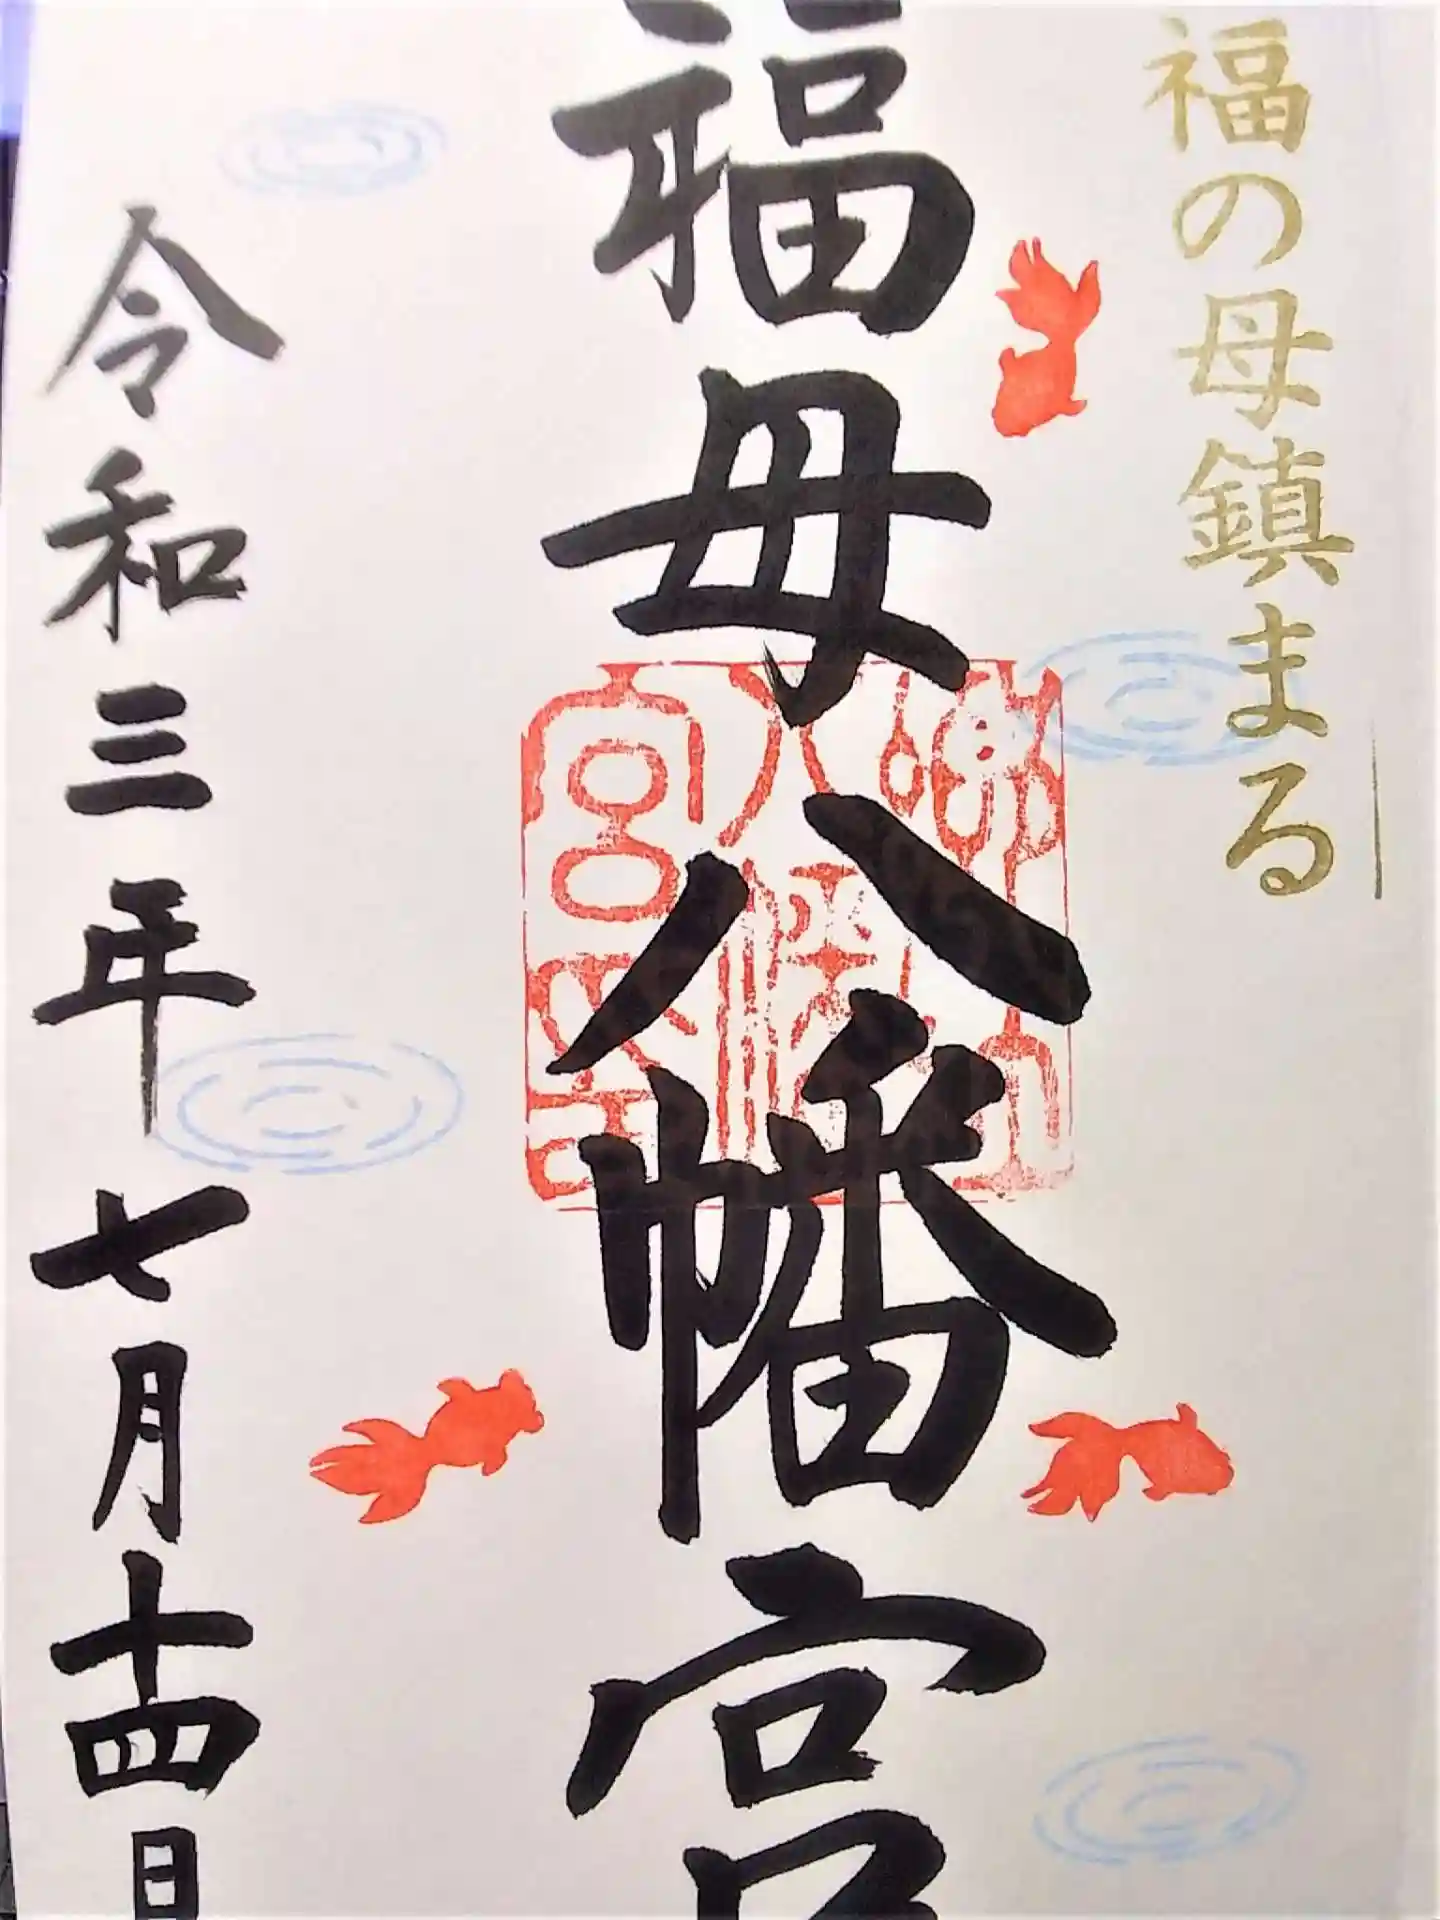 福の母鎮まる
福母八幡宮
令和三年七月十四日